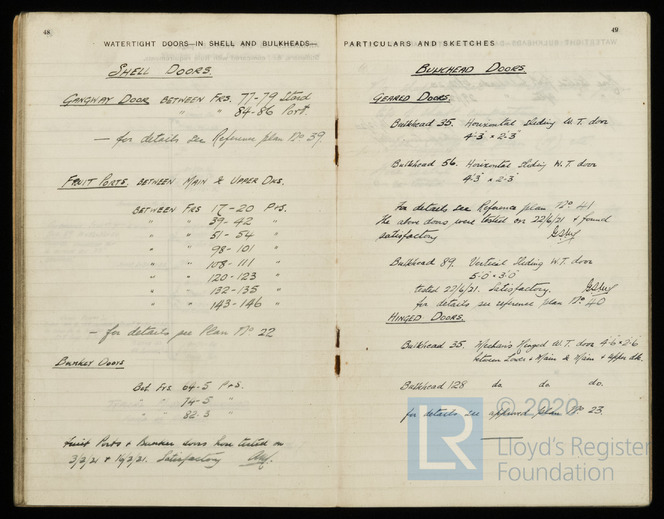 48
WATERTIGHT DOORS—IN SHELL AND BULKHEADS—
SHELL DOORS.
GANGWAY DOOR BETWEEN FRS. 77-79 Starbd
" " 84-86 Port.
— for details see Reference plan No 39.
FRUIT PORTS. BETWEEN MAIN & UPPER DKS.
BETWEEN FRS 17-20 P & S.
" " 39-42 "
" " 51-54 "
" " 98-101 "
" " 108-111 "
" " 120-123 "
" " 132-135 "
" " 143-146 "
— for details see Plan No 22
BUNKER DOORS
Bet. Frs. 64-5 P & S.
" " 74-5 "
" " 82-3 "
Fruit Ports & Bunker doors hose tested on
3/2/21 & 19/2/21. Satisfactory
49
PARTICULARS AND SKETCHES
BULKHEAD DOORS.
GEARED DOORS.
Bulkhead 35. Horizontal Sliding W.T. door
4'-3" × 2'-3"
Bulkhead 56. Horizontal Sliding W.T. door
4'-3" × 2'-3"
For details see Reference plan No 41
The above doors were tested on 22/6/21 & found
satisfactory
Bulkhead 89. Vertical Sliding W.T. door
5'-0" × 3'-0"
tested 27/6/21. Satisfactory.
for details see reference plan No 40
HINGED DOORS.
Bulkhead 35. Hinged W.T. door 4'-6" × 2'-6"
between Lower & Main & Main & Upper dks.
Bulkhead 128 do. do. do.
for details see approved plan No 23
© 2020
LR
Lloyd's Register
Foundation